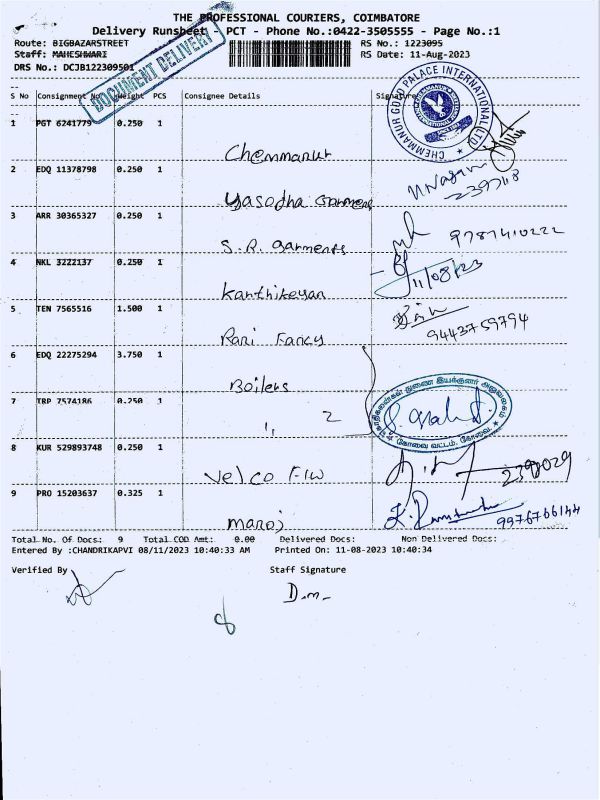 THE PROFESSIONAL COURIERS, COIMBATORE
Delivery Runsheet - PCT - Phone No.:0422-3505555 - Page No.:1
Route: BIGBAZARSTREET RS No.: 1223095
Staff: MAHESHWARI RS Date: 11-Aug-2023
DRS No.: DCJB122309501
DOCUMENT DELIVERY
S No Consignment No Weight PCS Consignee Details Signature
CHEMMANUR GOLD PALACE INTERNATIONAL LTD.
1 PGT 6241779 0.250 1
Chemmanur
2 EDQ 11378798 0.250 1
Yasodha Garment
3 ARR 30365327 0.250 1 9787410222
S.R. Garments
4 NKL 3222137 0.250 1 11/08/23
Karthikeyan
5 TEN 7565516 1.500 1
Rani Fancy 9443759794
6 EDQ 22275294 3.750 1
Boilers
7 TRP 7574186 0.250 1
" 2
8 KUR 529893748 0.250 1
Velco F/W
9 PRO 15203637 0.325 1
Manoj 9976766144
Total No. Of Docs: 9 Total COD Amt: 0.00 Delivered Docs: Non Delivered Docs:
Entered By :CHANDRIKAPVI 08/11/2023 10:40:33 AM Printed On: 11-08-2023 10:40:34
Verified By Staff Signature
D.m-